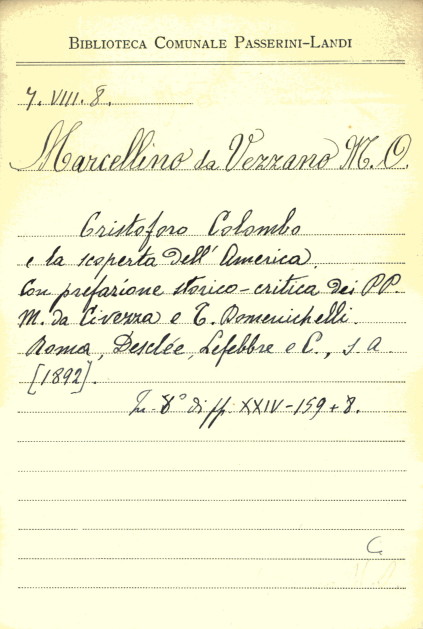 BIBLIOTECA COMUNALE PASSERINI-LANDI
7. VIII. 8.
Marcellino da Vezzano M. O.
Cristoforo Colombo
e la scoperta dell'America.
Con prefazione storico-critica dei PP.
M. da Civezza e T. Domenichelli.
Roma, Desclée, Lefebbre e C., s. a.
[1892].
In-8° di pp. XXIV-159+8.
C